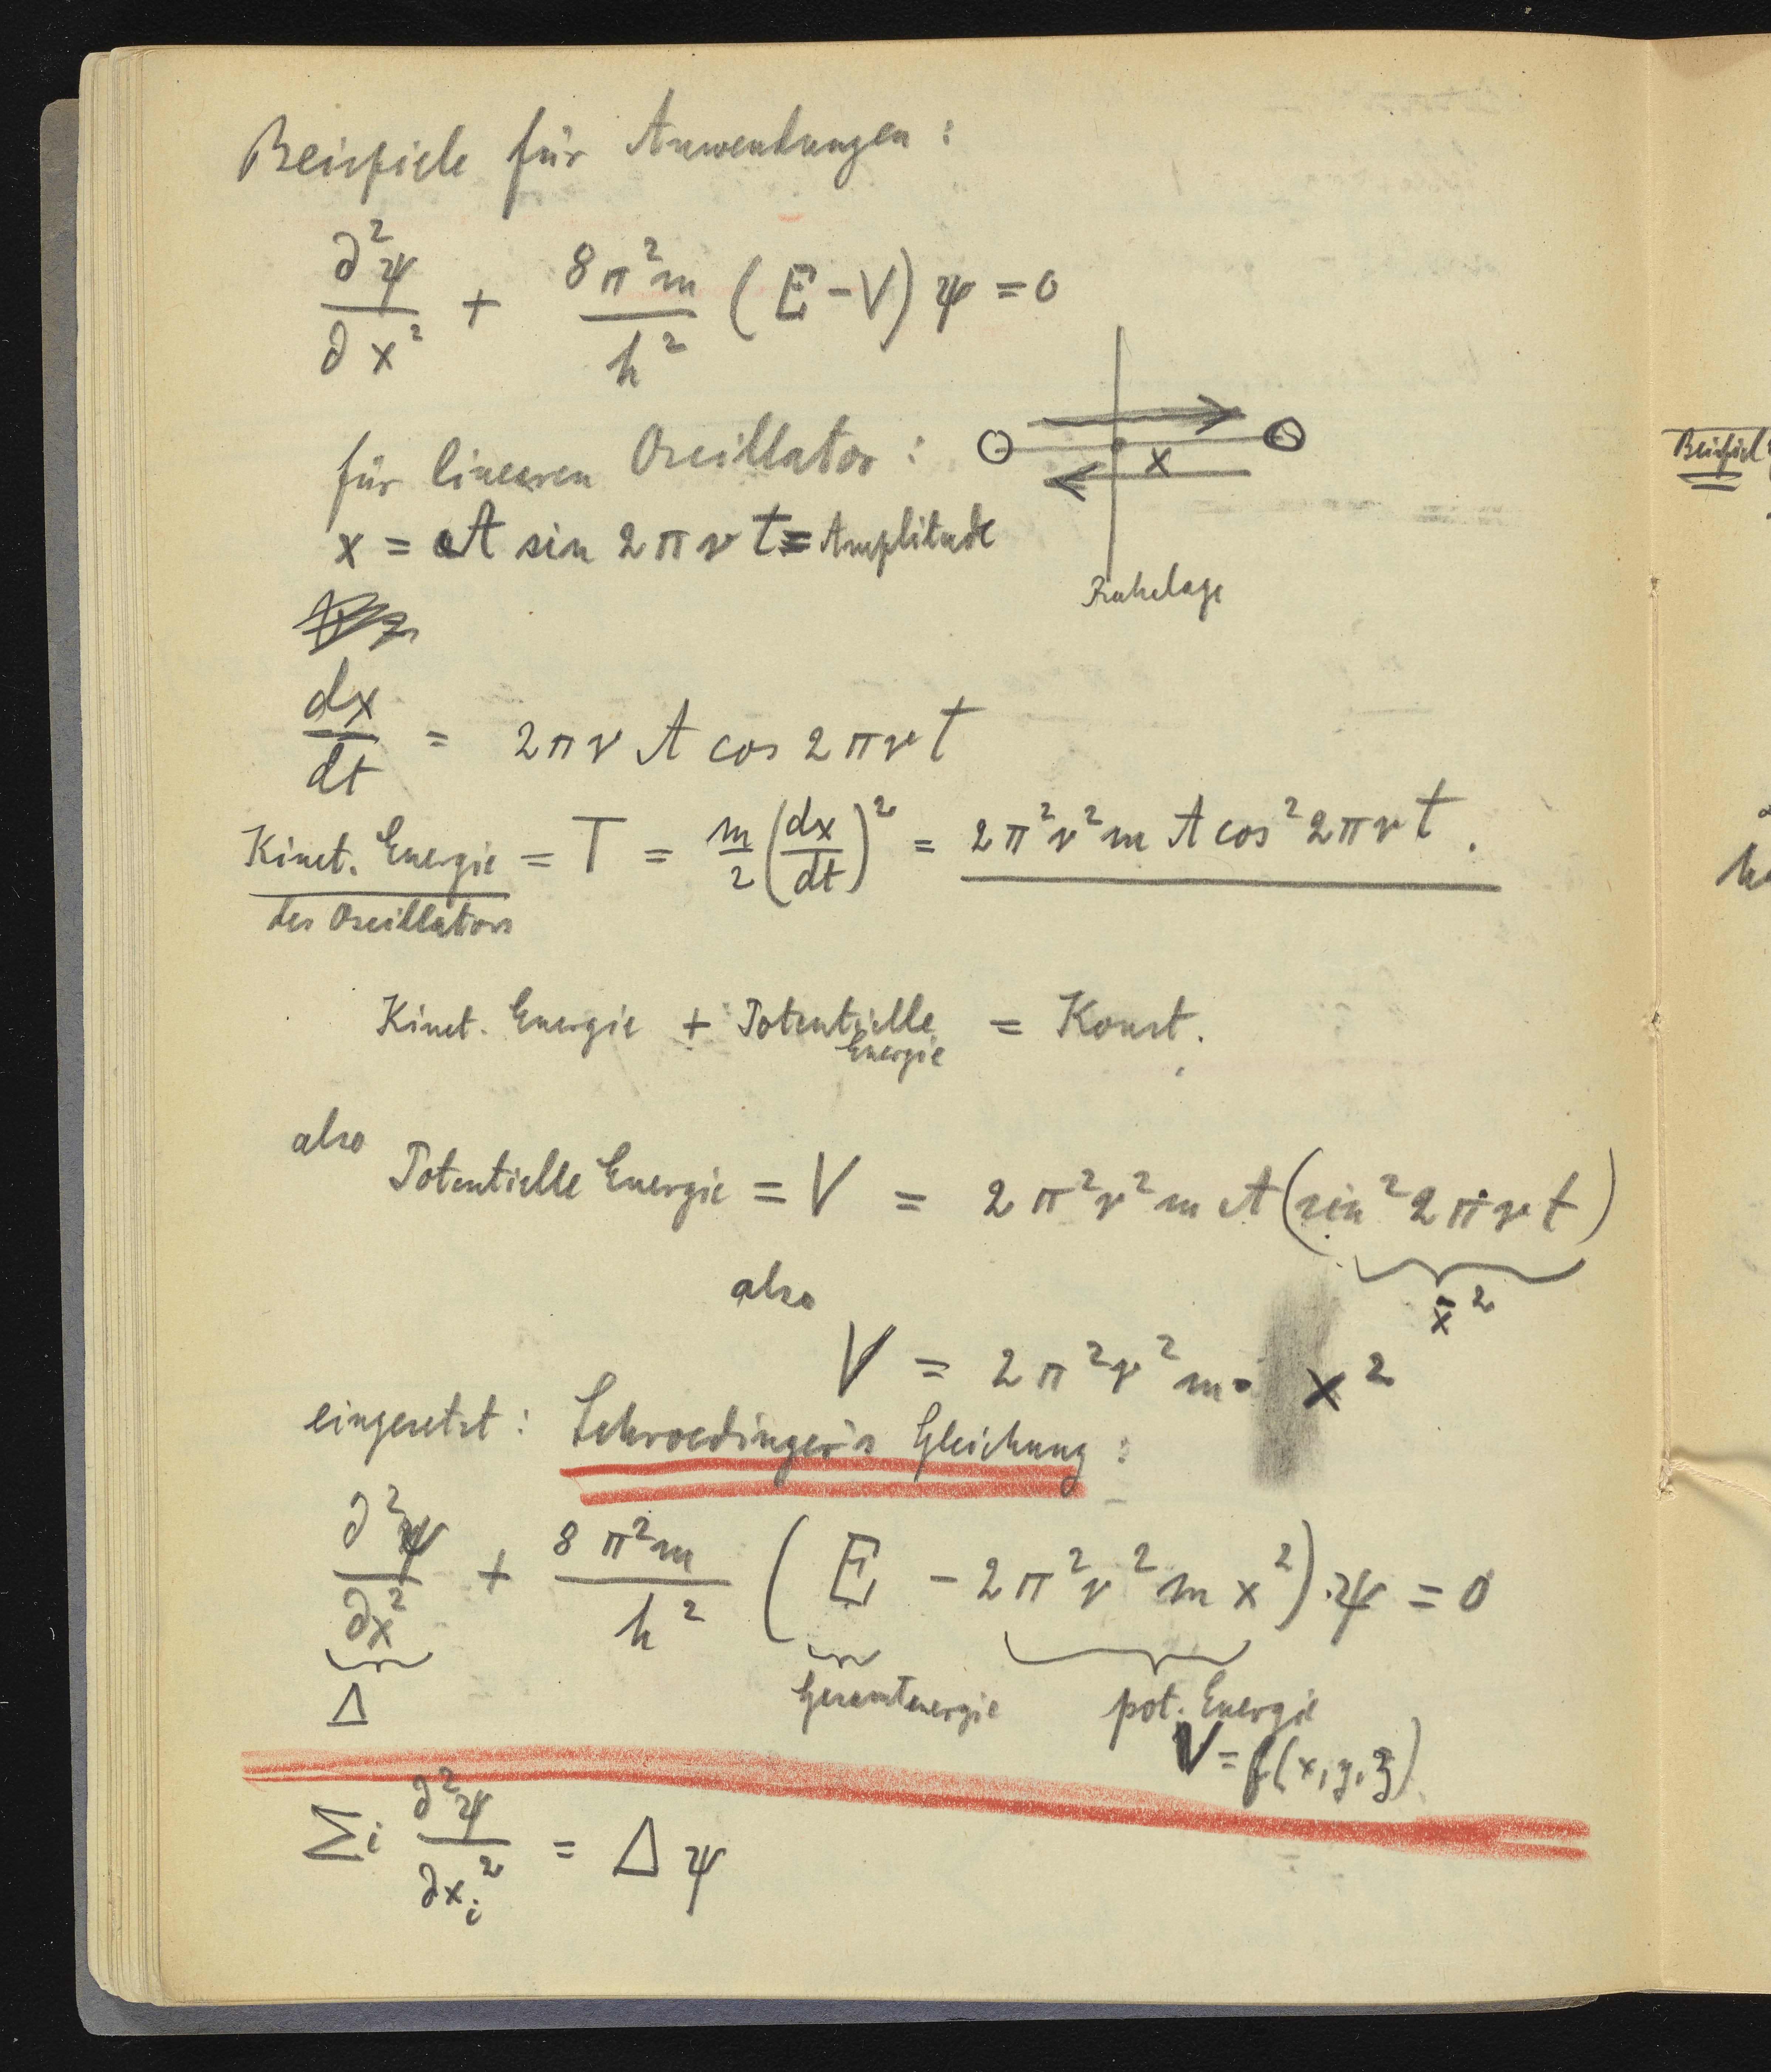 Beispiele für Anwendungen:
∂²ψ/∂x² + 8π²m/h² (E-V) ψ = 0
für linearen Oscillator:
x
x = A sin 2πνt = Amplitude
Ruhelage
dx/dt = 2πν A cos 2πνt
Kinet. Energie = T = m/2 (dx/dt)² = 2π²ν²m A cos² 2πνt.
des Oscillators
Kinet. Energie + Potentielle Energie = Konst.
also
Potentielle Energie = V = 2π²ν²m A (sin² 2πνt)
x̄²
also
V = 2π²ν²m · x²
eingesetzt: Schroedinger's Gleichung:
∂²ψ/∂x² + 8π²m/h² (E - 2π²ν²m x²)·ψ = 0
Δ
Gesamtenergie
pot. Energie
V = f(x,y,z)
Σi ∂²ψ/∂xi² = Δψ
Beispiel